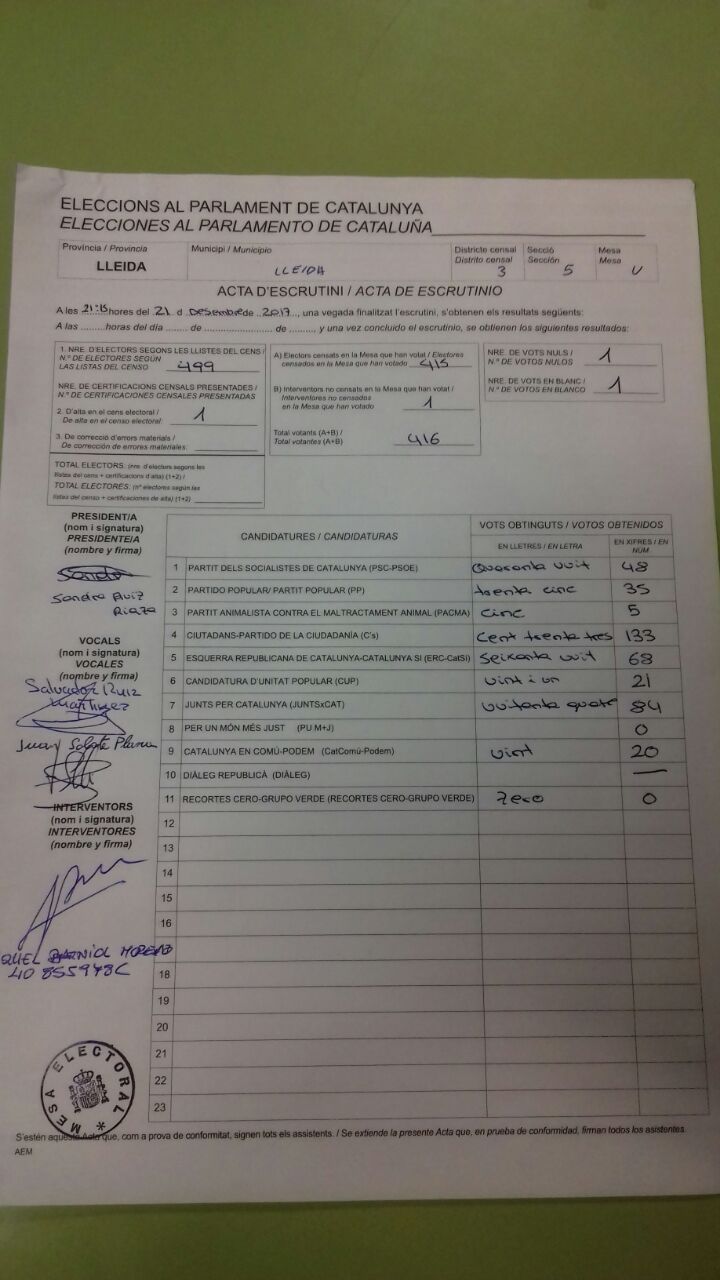 ELECCIONS AL PARLAMENT DE CATALUNYA
ELECCIONES AL PARLAMENTO DE CATALUÑA
Província / Provincia LLEIDA
Municipi / Municipio LLEIDA
Districte censal Distrito censal 3
Secció Sección 5
Mesa Mesa U
ACTA D'ESCRUTINI / ACTA DE ESCRUTINIO
A les 21:15 hores del 21 d Desembre de 2017, una vegada finalitzat l'escrutini, s'obtenen els resultats següents:
A las ........horas del día ....... de ........................ de ........, y una vez concluido el escrutinio, se obtienen los siguientes resultados:
1. NRE. D'ELECTORS SEGONS LES LLISTES DEL CENS /
N.º DE ELECTORES SEGÚN
LAS LISTAS DEL CENSO 499
NRE. DE CERTIFICACIONS CENSALS PRESENTADES /
N.º DE CERTIFICACIONES CENSALES PRESENTADAS
2. D'alta en el cens electoral /
De alta en el censo electoral: 1
3. De correcció d'errors materials /
De corrección de errores materiales:
TOTAL ELECTORS: (nre. d'electors segons les
llistes del cens + certificacions d'alta) (1+2) /
TOTAL ELECTORES: (nº electores según las
listas del censo + certificaciones de alta) (1+2)
A) Electors censats en la Mesa que han votat / Electores
censados en la Mesa que han votado 415
B) Interventors no censats en la Mesa que han votat /
Interventores no censados
en la Mesa que han votado 1
Total votants (A+B) /
Total votantes (A+B) 416
NRE. DE VOTS NULS /
N.º DE VOTOS NULOS 1
NRE. DE VOTS EN BLANC /
N.º DE VOTOS EN BLANCO 1
PRESIDENT/A
(nom i signatura)
PRESIDENTE/A
(nombre y firma)
Sandra Ruiz
Riaza
VOCALS
(nom i signatura)
VOCALES
(nombre y firma)
Salvador Ruiz
Martinez
Juan
INTERVENTORS
(nom i signatura)
INTERVENTORES
(nombre y firma)
QUEL BARNIOL MORENO
40855978C
CANDIDATURES / CANDIDATURAS
VOTS OBTINGUTS / VOTOS OBTENIDOS
EN LLETRES / EN LETRA
EN XIFRES / EN NÚM.
1 PARTIT DELS SOCIALISTES DE CATALUNYA (PSC-PSOE) Quaranta vuit 48
2 PARTIDO POPULAR/ PARTIT POPULAR (PP) trenta cinc 35
3 PARTIT ANIMALISTA CONTRA EL MALTRACTAMENT ANIMAL (PACMA) cinc 5
4 CIUTADANS-PARTIDO DE LA CIUDADANÍA (C's) Cent trenta tres 133
5 ESQUERRA REPUBLICANA DE CATALUNYA-CATALUNYA SÍ (ERC-CatSí) Seixanta vuit 68
6 CANDIDATURA D'UNITAT POPULAR (CUP) vint i un 21
7 JUNTS PER CATALUNYA (JUNTSxCAT) vuitanta quatre 84
8 PER UN MÓN MÉS JUST (PU M+J) 0
9 CATALUNYA EN COMÚ-PODEM (CatComú-Podem) vint 20
10 DIÀLEG REPUBLICÀ (DIÀLEG) —
11 RECORTES CERO-GRUPO VERDE (RECORTES CERO-GRUPO VERDE) Zero 0
12
13
14
15
16
18
19
20
21
22
23
MESA ELECTORAL *
S'estén aquesta Acta que, com a prova de conformitat, signen tots els assistents. / Se extiende la presente Acta que, en prueba de conformidad, firman todos los asistentes.
AEM